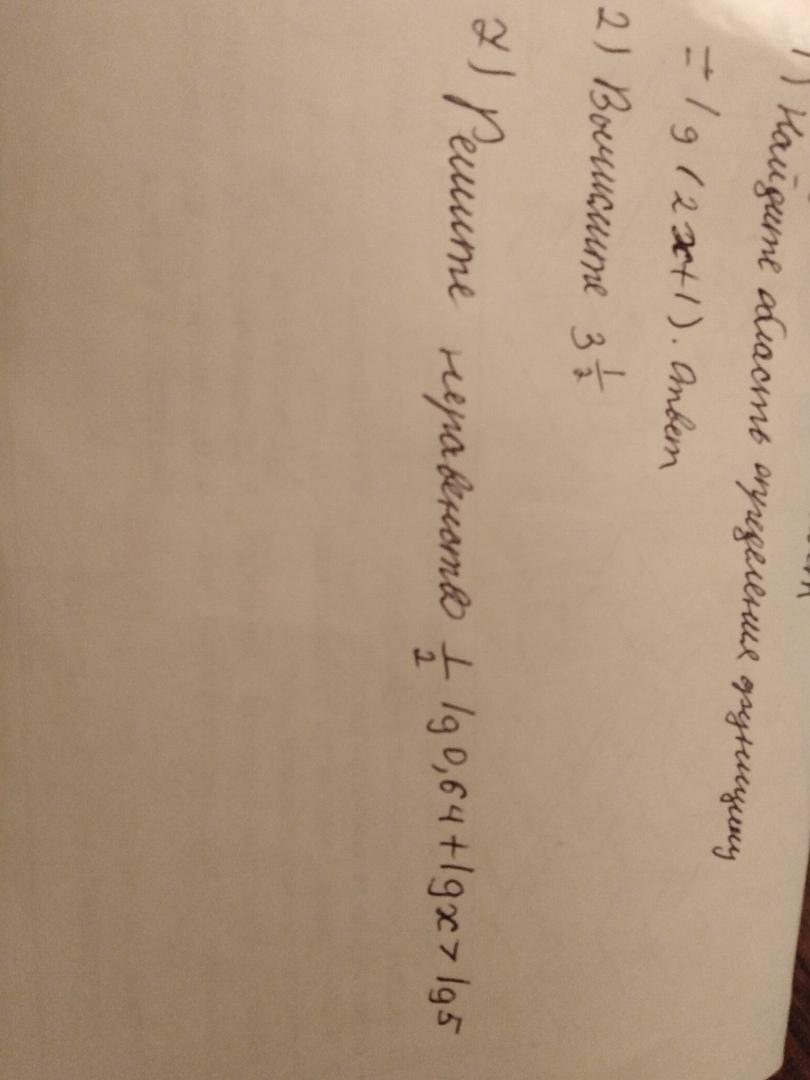 1) Найдите область определения функцину
= lg (2x+1). Ответ
2) Вычислите 3 1/2
7) Решите неравенство 1/2 lg 0,64 + lg x > lg 5